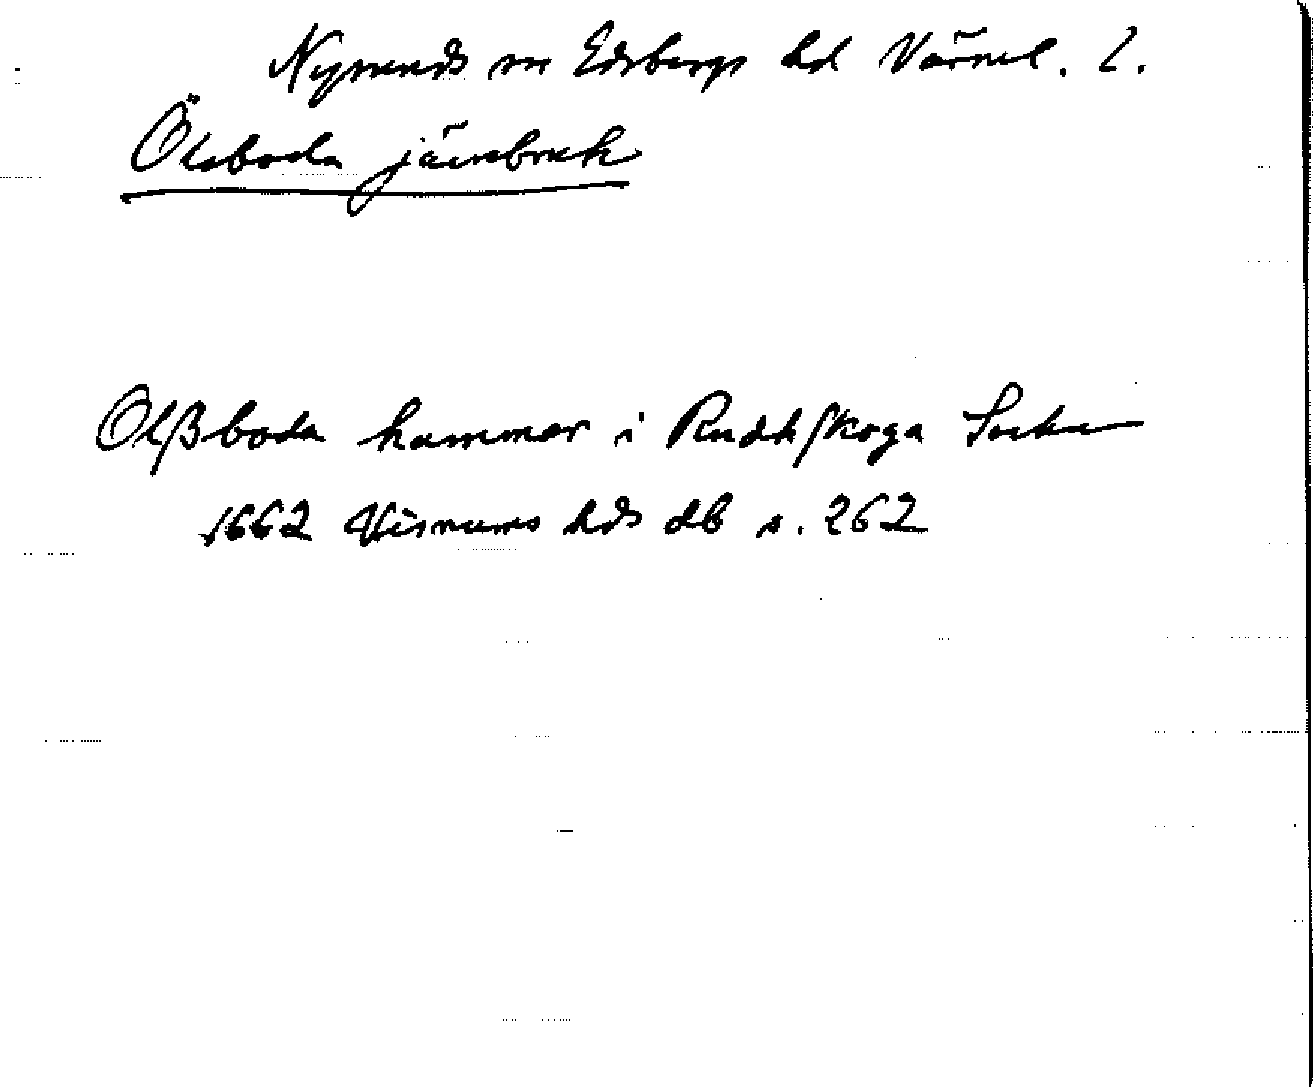 Nysunds sn Edsbergs hd Värml. l.
Ölsboda järnbruk
Olßboda hammar i Rudhskoga Socken
1662 Visnums hds db s. 262